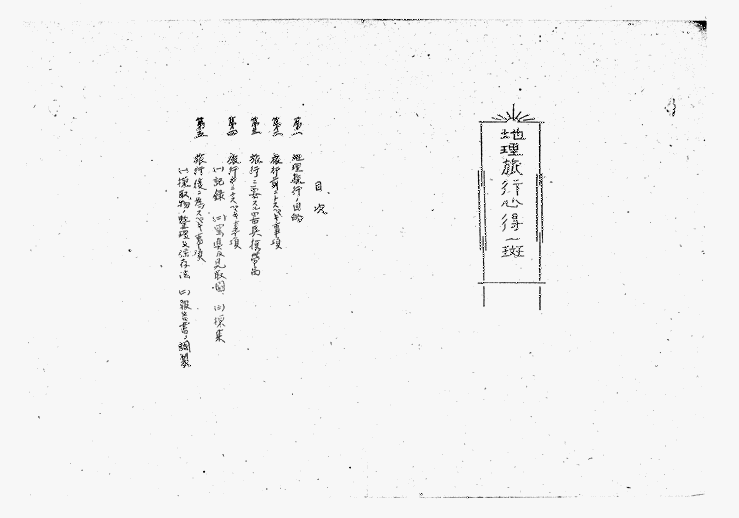 地理旅行心得一斑
目次
第一 地理旅行ノ目的
第二 旅行前ニナスベキ事項
第三 旅行ニ要スル器具携帯品
第四 旅行中ニナスベキ事項
(一)記録 (二)写真及見取図 (三)採集
第五 旅行後ニ為スベキ事項
(一)採取物ノ整理及保存法 (二)報告書ノ編纂